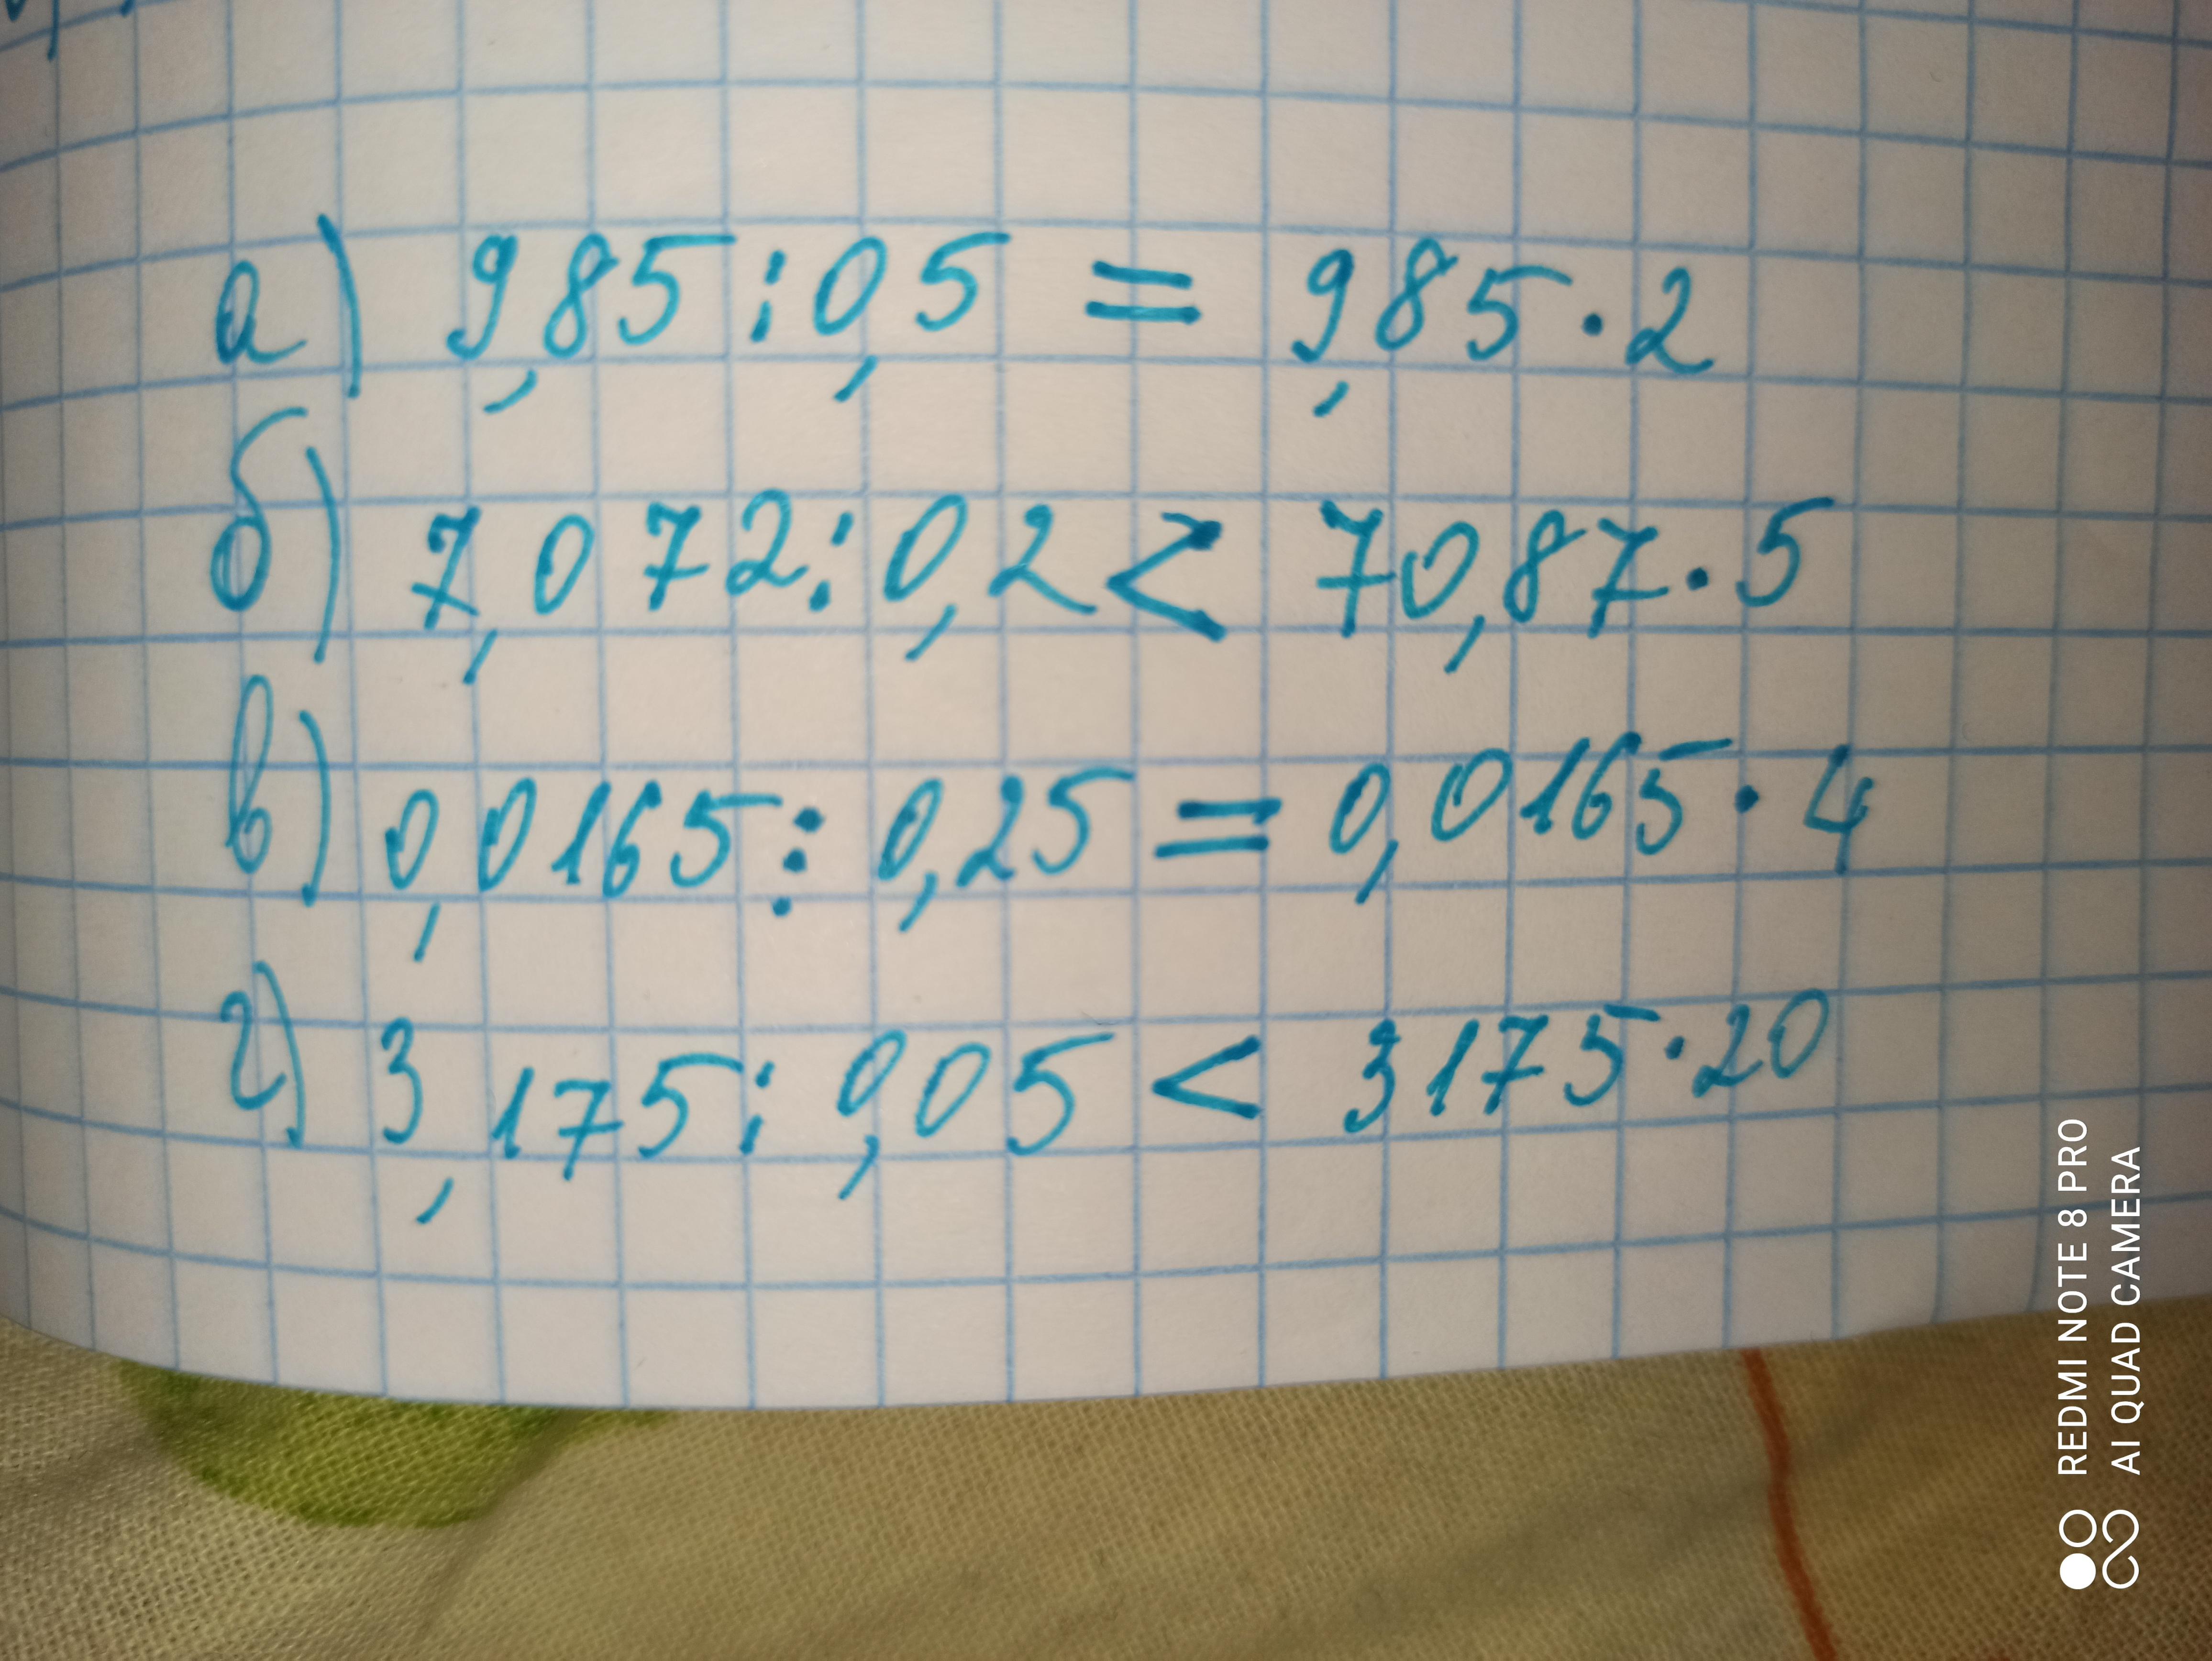 а) 9,85 : 0,5 = 9,85 · 2
б) 7,072 : 0,2 < 70,87 · 5
в) 0,0165 : 0,25 = 0,0165 · 4
г) 3,175 : 0,05 < 3175 · 20
REDMI NOTE 8 PRO
AI QUAD CAMERA